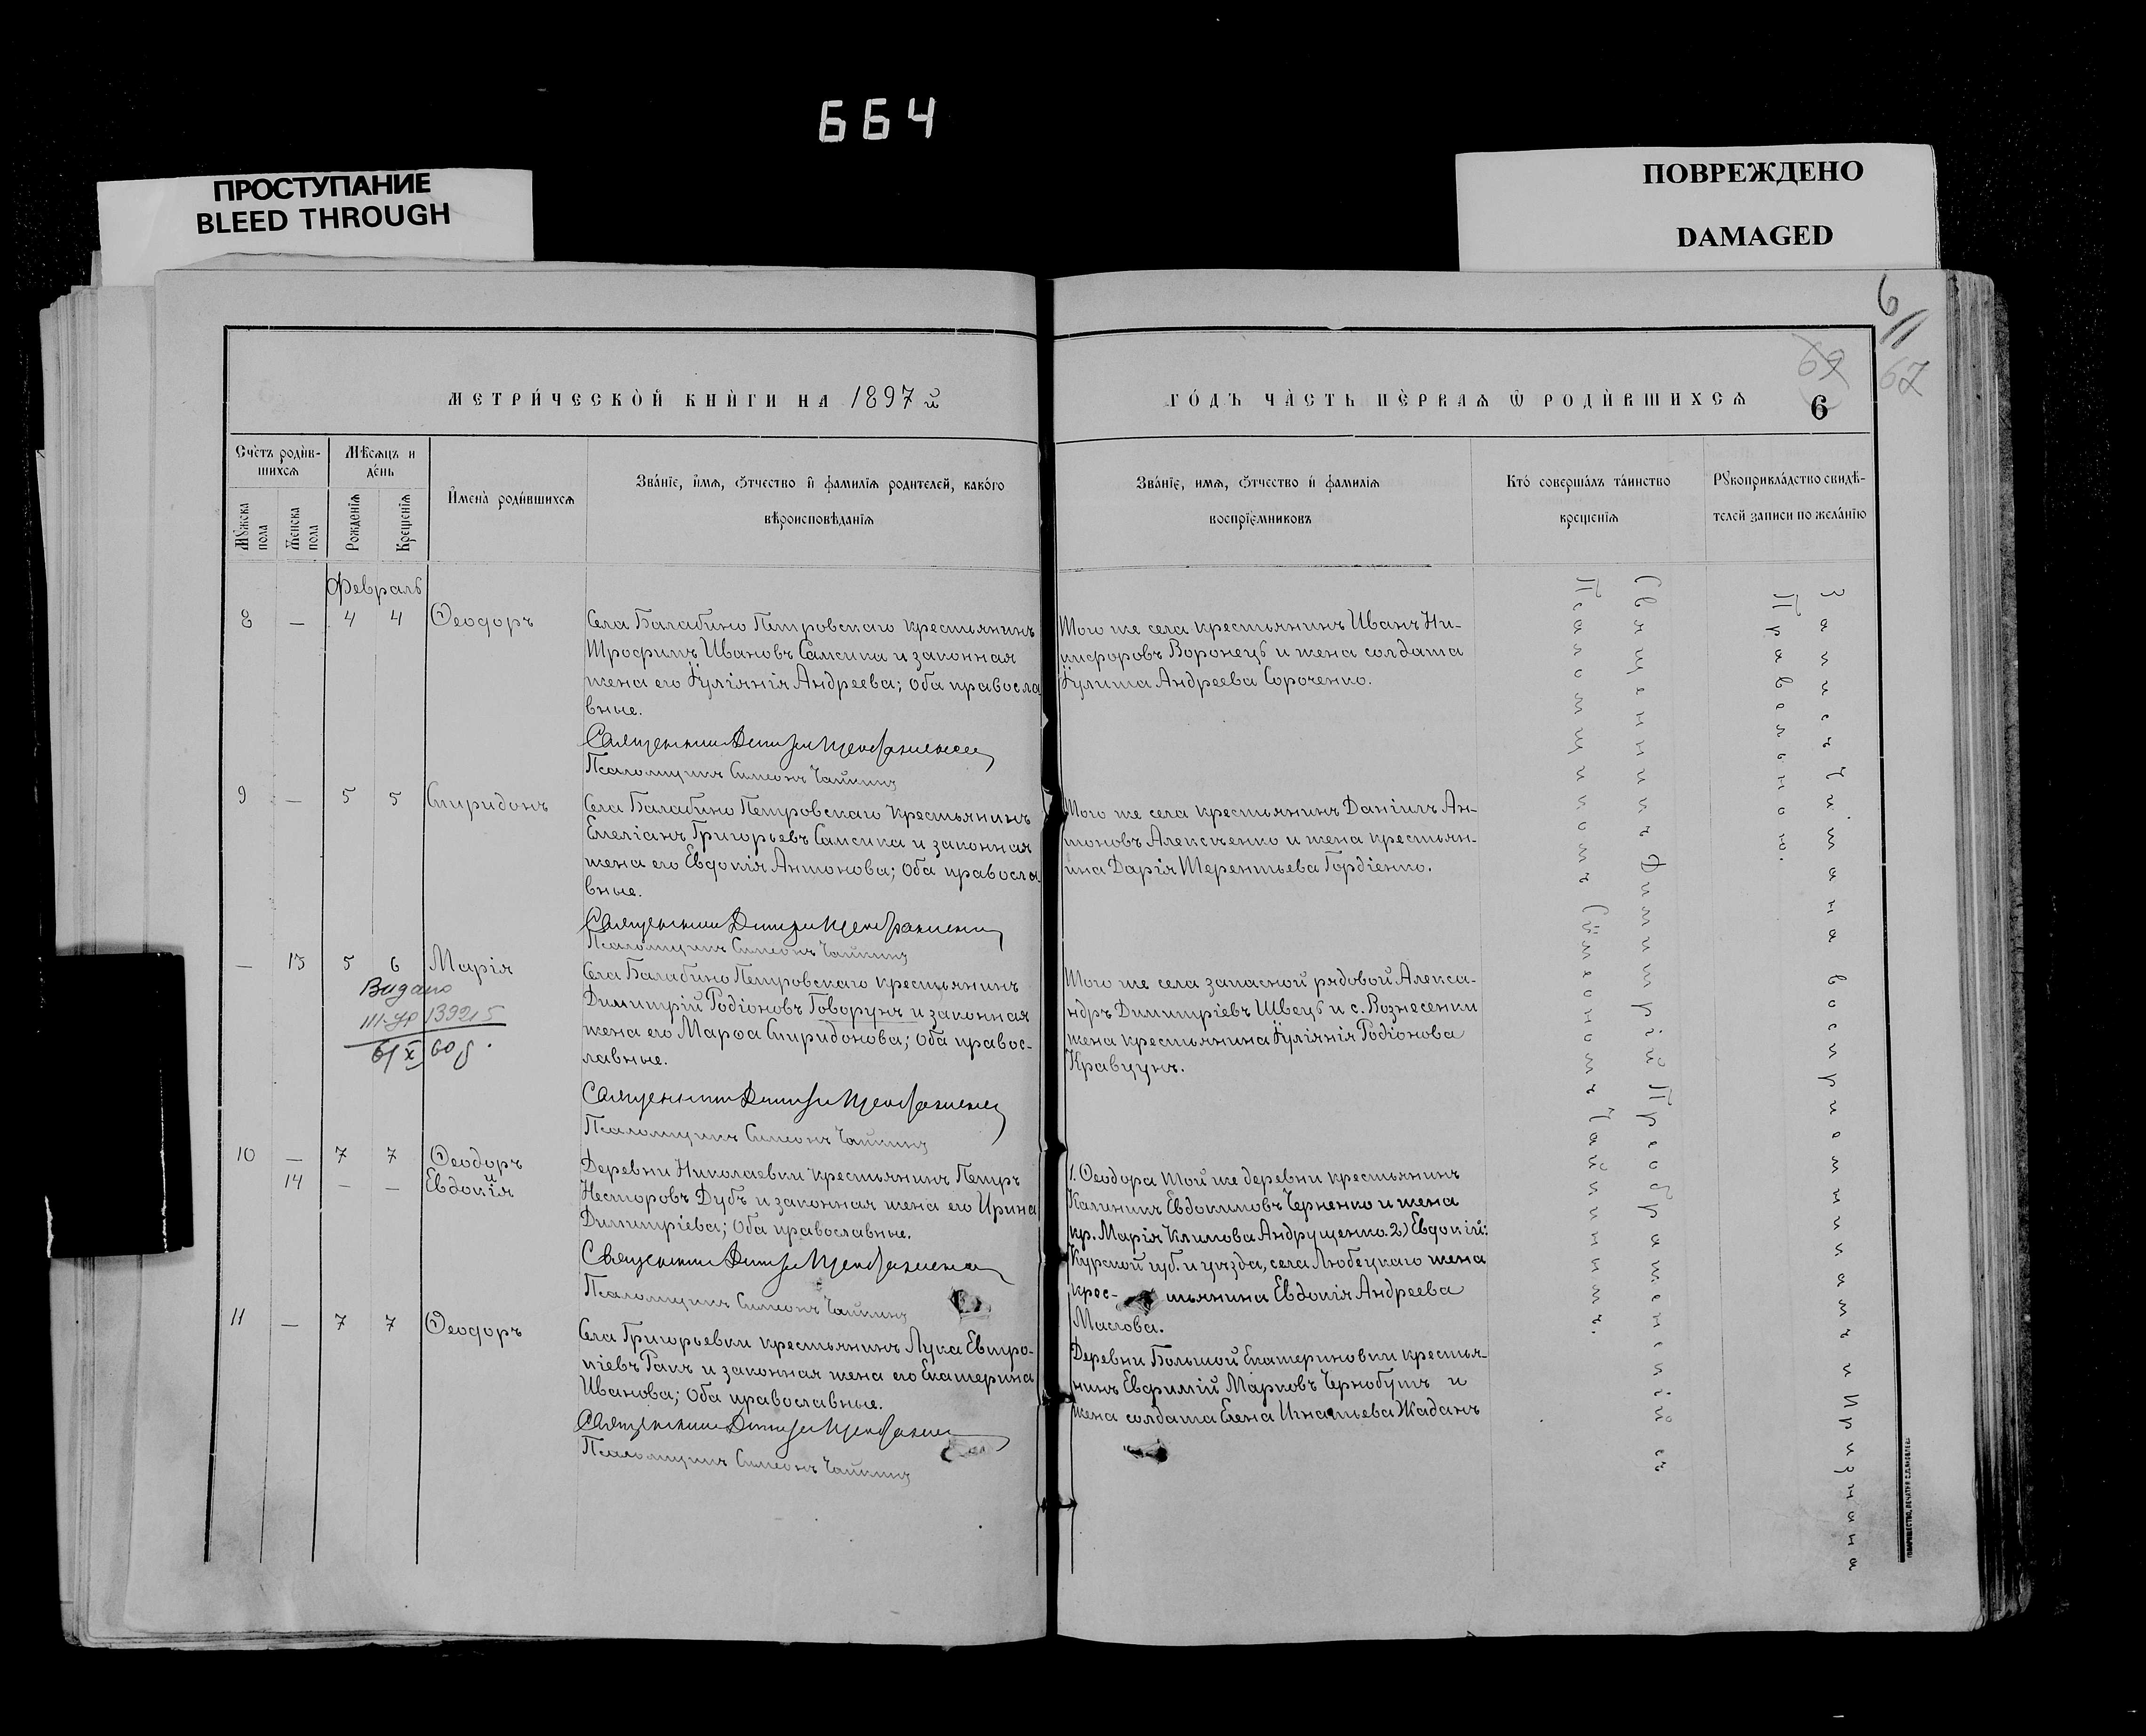 664
ПРОСТУПАНИЕ
BLEED THROUGH
ПОВРЕЖДЕНО
DAMAGED
6
69
67
МЕТРИ́ЧЕСКОЙ КНИ́ГИ НА 1897 й
ГО́ДЪ ЧА́СТЬ ПЕ́РВАѦ Ѡ РОДИ́ВШИХСѦ
6
Сче́тъ роди́в-
шихсѧ
Мꙋжска пола
Женска пола
Мѣ́сѧцъ и
де́нь
Рожденїѧ
Крещенїѧ
И҆мена̀ роди́вшихсѧ
Зва́нїе, и҆́мѧ, ѻ҆́тчество и҆ фамилїѧ родителей, како́го
вѣроисповѣ́данїѧ
Зва́нїе, имѧ, ѻ҆́тчество и҆ фамилїѧ
воспрїе́мниковъ
Кто́ соверша́лъ та́инство
крещенїѧ
Рꙋкоприкла́дство свидѣ́-
телей записи по жела́нїю
Февраль
8 — 4 4 Ѳеодоръ
Села Балабино Петровскаго крестьянинъ
Трофимъ Ивановъ Самсика и законная
жена его Іуліянія Андреева; Оба правосла
вные.
Священникъ Димитрій Преображенскій
Псаломщикъ Симеонъ Чайкинъ
Того же села крестьянинъ Иванъ Ни-
кифоровъ Воронецъ и жена солдата
Іулита Андреева Сороченко.
9 — 5 5 Спиридонъ
Села Балабино Петровскаго крестьянинъ
Емеліанъ Григорьевъ Самсика и законная
жена его Евдокія Антонова; Оба правосла
вные.
Священникъ Димитрій Преображенскій
Псаломщикъ Симеонъ Чайкинъ
Того же села крестьянинъ Даніилъ Ан-
тоновъ Алексѣенко и жена крестьян-
ина Дарія Терентьева Гордіенко.
— 13 5 6 Марія
Видано
III-УР 139215
6/X 60 г.
Села Балабино Петровскаго крестьянинъ
Димитрій Родіоновъ Говорунъ и законная
жена его Марѳа Спиридонова; Оба правос-
лавные.
Священникъ Димитрій Преображенскій
Псаломщикъ Симеонъ Чайкинъ
Того же села запасной рядовой Алекса-
ндръ Димитріевъ Швецъ и с. Вознесенки
жена крестьянина Іуліянія Родіонова
Кравцунъ.
10 — 7 7 Ѳеодоръ
и
14 — — Евдокія
Деревни Николаевки крестьянинъ Петръ
Несторовъ Дубъ и законная жена его Ирина
Димитріева; Оба православные.
Священникъ Димитрій Преображенскій
Псаломщикъ Симеонъ Чайкинъ
1. Ѳеодора той же деревни крестьянинъ
Калиникъ Евдокимовъ Черненко и жена
кр. Марія Климова Андрущенко. 2) Евдокіи:
Курской губ. и уѣзда, села Любецкаго жена
крес- тьянина Евдокія Андреева
Маслова.
11 — 7 7 Ѳеодоръ
Села Григорьевки крестьянинъ Лука Евтро-
піевъ Ракъ и законная жена его Екатерина
Иванова; Оба православные.
Священникъ Димитрій Преображенскій
Псаломщикъ Симеонъ Чайкинъ
Деревни Большой Екатериновки крестья-
нинъ Евфимій Марковъ Чернобукъ и
жена солдата Елена Игнатьева Жаданъ
Священникъ Димитрій Преображенскій съ
Псаломщикомъ Симеономъ Чайкинымъ.
Запись читана воспріемникамъ и признана
Правильною.